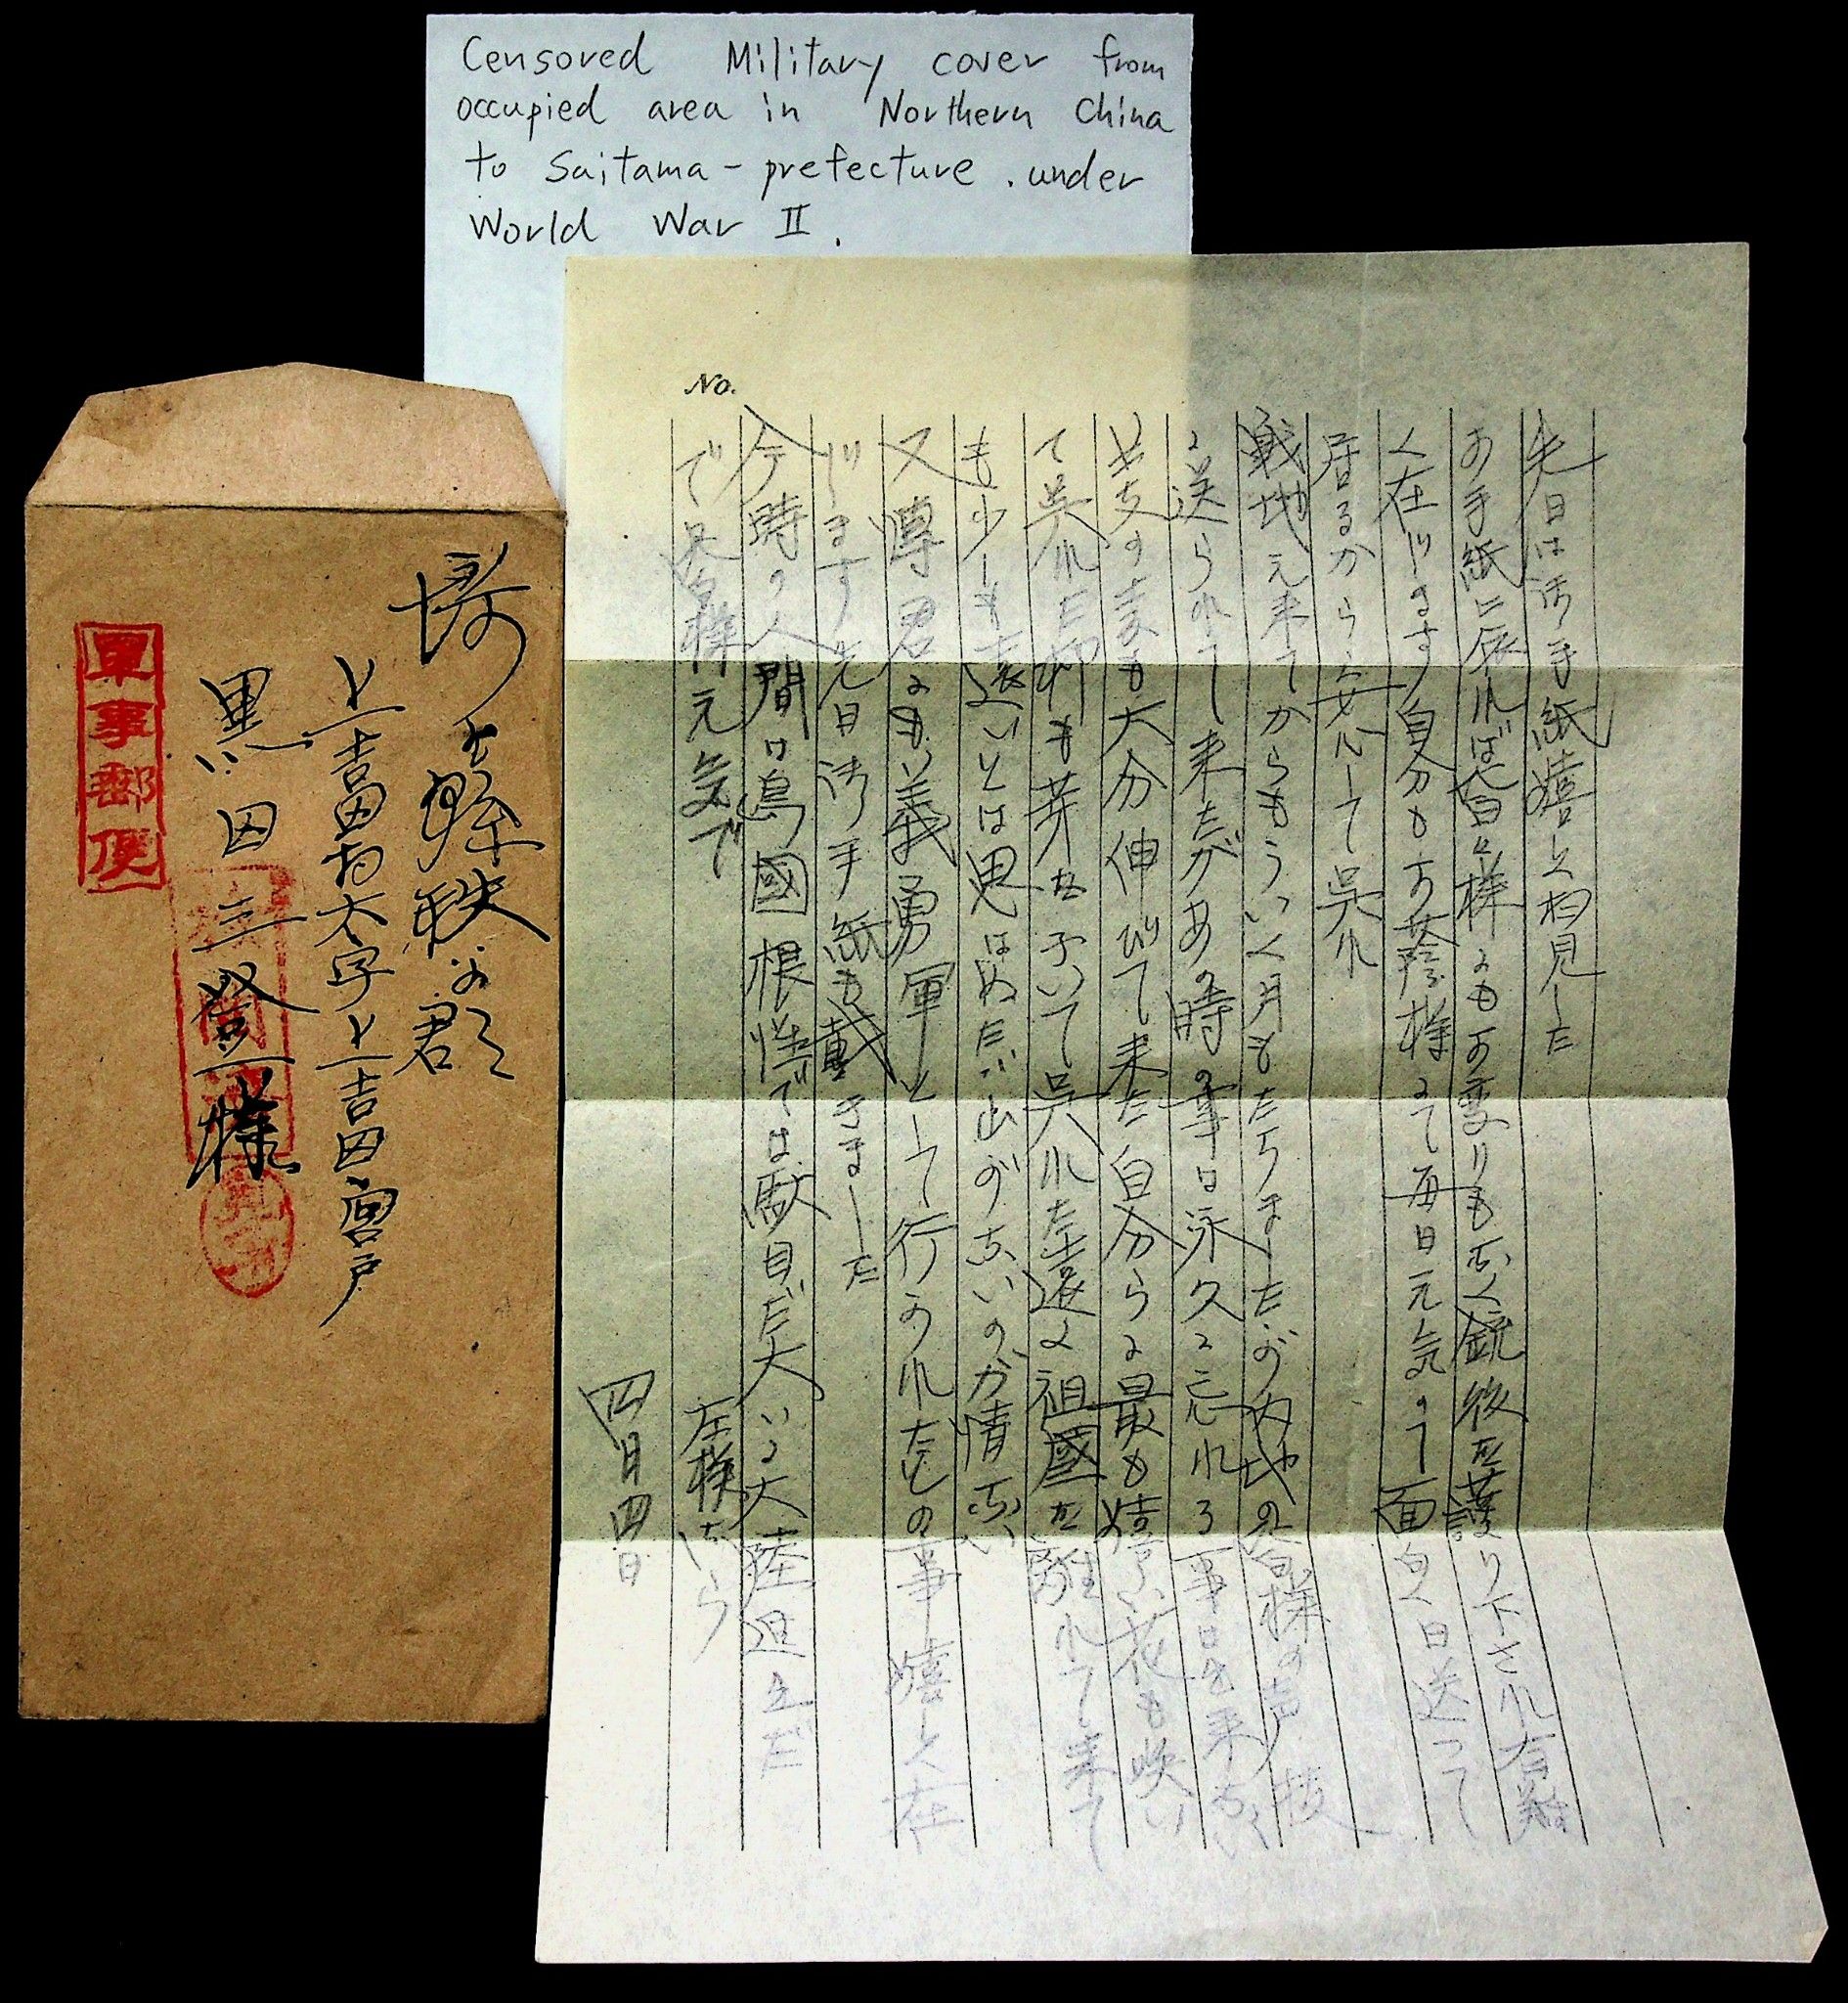 Censored Military cover from
occupied area in Northern China
to Saitama-prefecture. under
World War II.
No.
先日は御手紙嬉しく拝見した
お手紙に依れば皆々様にもお変りもなく銃後を護り下され有難
く在じます自分もお蔭様にて毎日元気にて面白く日送って
居るから安心して呉れ
戦地え来てからもういく月もたちましたが内地の皆様の声援
に送られて来たがあの時の事は永久に忘れる事は出来なく
支の麦も大分伸びて来た自分らに最も嬉しい花も咲い
て呉れた柳も芽を予いて呉れた遠く祖國を離れて来て
も少しも遠いとは思はぬただ山がないのが情ない
又 君にも義勇軍として行かれたとの事嬉しく在
じます先日御手紙も戴きました
今時の人間は島國根性では駄目だ大いに大陸進立だ
で 皆様元気で 左様なら
四月四日
埼玉縣秩父郡
上吉田村大字上吉田宮戸
黒田三登様
君
軍事郵便
検閲済